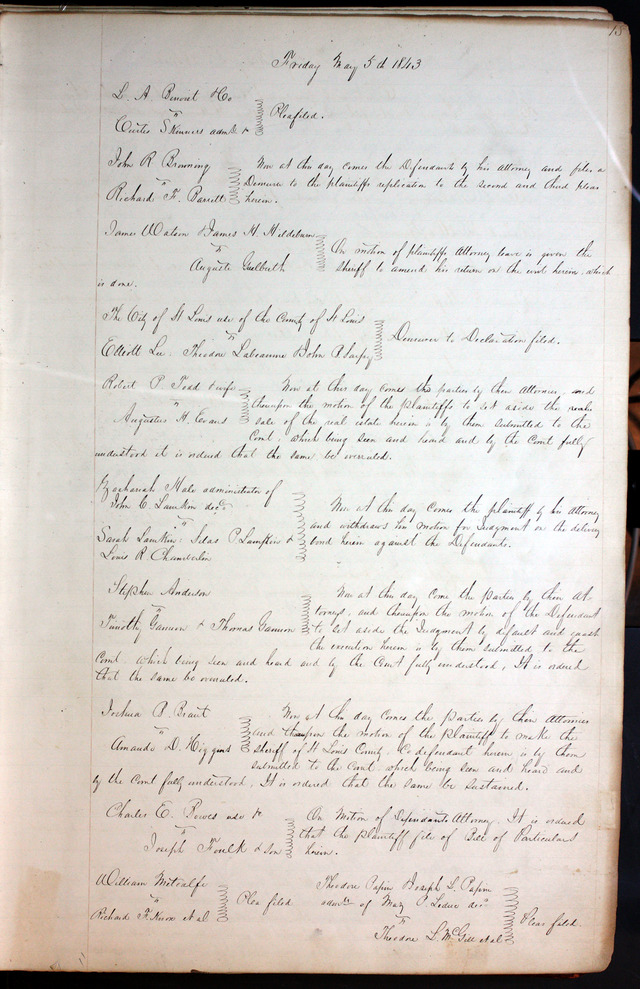 15
Friday May 5th 1843
L. A. Benoist & Co
vs
Curtis Skinners admr &c
Plea filed.
John R Browning
vs
Richard F. Barrett
Now at this day comes the Defendant by his attorney and files a
Demurer to the plaintiffs replication to the second and third pleas
herein.
James Watson & James H Hildeburn
vs
Auguste Guelbreth
On motion of plaintiffs Attorney leave is given the
sheriff to amend his return on the writ herein, which
is done.
The City of St Louis use of the County of St Louis
vs
Elliott Lee, Theodore Labeaume & John R Sarpy
Demurer to Declaration filed.
Robert P. Todd & wife
vs
Augustus H. Evans
Now at this day comes the parties by their Attornies, and
thereupon the motion of the plaintiffs to set aside the
sale of the real estate herein is by them submitted to the
Court, which being seen and heard and by the Court fully
understood it is ordered that the same be overuled.
Zachariah Hale administrator of
John C. Lamkin decd
vs
Sarah Lamkin, Silas P Lampkin &
Louis R. Chamberlin
Now at this day comes the plaintiff by his attorney
and withdraws his motion for Judgment on the delivery
bond herein against the Defendants.
Stephen Anderson
vs
Timothy Gannon & Thomas Gannon
Now at this day come the parties by their At
torneys, and thereupon the motion of the Defendant
to set aside the Judgment by default and quash
the execution herein is by them submitted to the
Court, which being seen and heard and by the Court fully understood, It is ordered
that the same be overuled.
Joshua B. Brant
vs
Amanda D. Higgins
Now at this day comes the parties by their Attornies
and thereupon the motion of the Plaintiff to make the
sheriff of St Louis County, Co defendant herein is by them
submitted to the Court, which being seen and heard and
by the Court fully understood, It is ordered that the same be Sustained.
Charles E. Bowes use &c
vs
Joseph Foulk & Son
On Motion of Defendants Attorney, It is ordered
that the plaintiff file of Bill of Particulars
herein.
William Metcalfe
vs
Richard F. et al
Plea filed
Theodore Papin & Joseph L. Papin
admrs of P. Leduc decd
vs
Theodore L. McGill et al
Pleas filed.